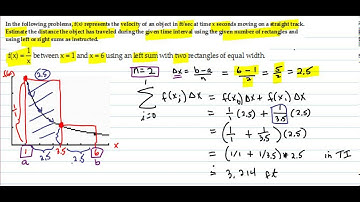 In the following problems, f(x) represents the velocity of an object in ft/sec at time x seconds moving on a straight track.
Estimate the distance the object has traveled during the given time interval using the given number of rectangles and
using left or right sums as instructed.
f(x) = 1/x between x = 1 and x = 6 using an left sum with two rectangles of equal width.
n = 2 Δx = b-a/n = 6-1/2 = 5/2 = 2.5
f(x) 2.5
Σ i=0 f(xᵢ) Δx = f(x₀) Δx + f(x₁) Δx
= 1/1 (2.5) + 1/3.5 (2.5)
= (1/1 + 1/3.5)(2.5)
= (1/1 + 1/3.5) * 2.5 in TI
= 3.214 ft
1/1
1 3.5 6 x
a 2.5 2.5 b